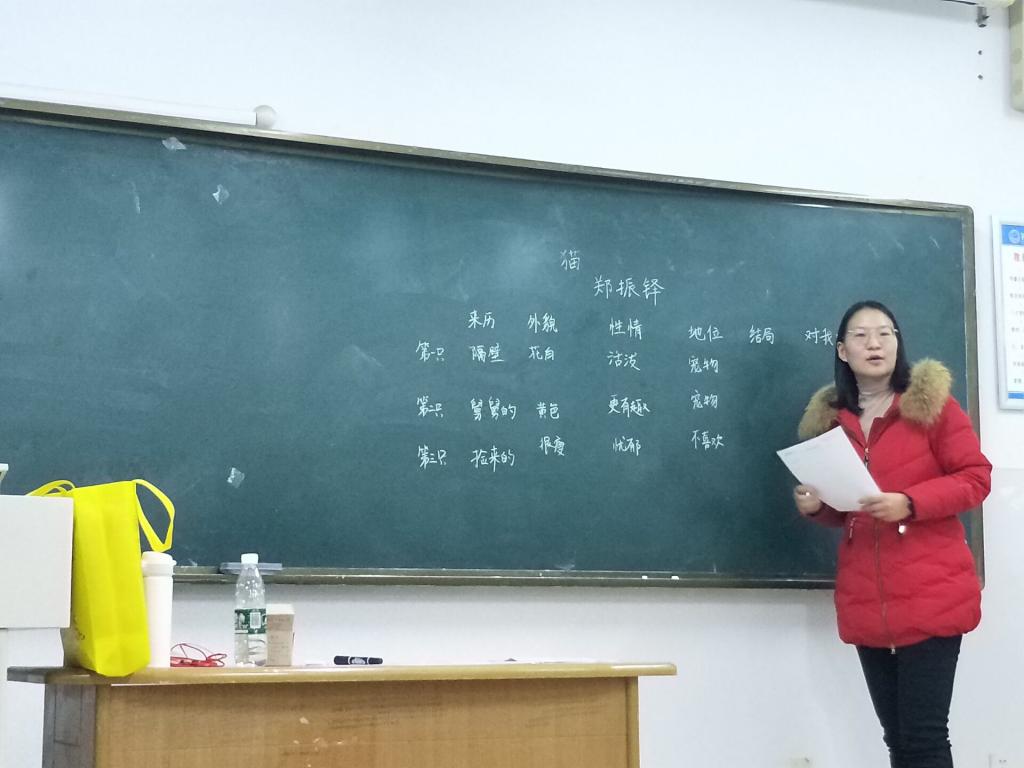 猫
郑振铎
来历 外貌 性情 地位 结局 对我
第一只 隔壁 花白 活泼 宠物
第二只 舅舅的 黄色 更有趣 宠物
第三只 捡来的 很瘦 忧郁 不喜欢